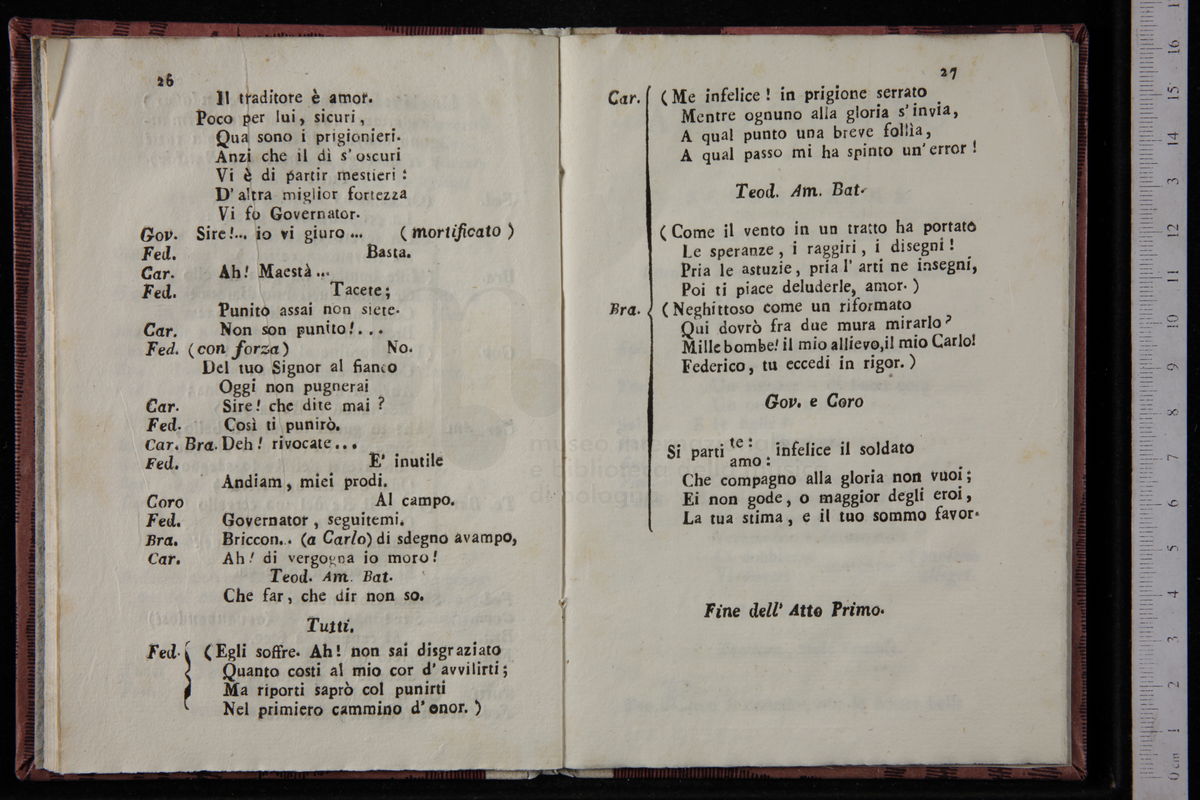 26
Il traditore è amor.
Poco per lui, sicuri,
Qua sono i prigionieri.
Anzi che il dì s'oscuri
Vi è di partir mestieri:
D'altra miglior fortezza
Vi fo Governator.
Gov. Sire!... io vi giuro... (mortificato)
Fed. Basta.
Car. Ah! Maestà...
Fed. Tacete;
Punito assai non siete.
Car. Non son punito!...
Fed. (con forza) No.
Del tuo Signor al fianco
Oggi non pugnerai
Car. Sire! che dite mai?
Fed. Così ti punirò.
Car. Bra. Deh! rivocate...
Fed. E' inutile
Andiam, miei prodi.
Coro Al campo.
Fed. Governator, seguitemi.
Bra. Briccon... (a Carlo) di sdegno avampo,
Car. Ah! di vergogna io moro!
Teod. Am. Bat.
Che far, che dir non so.
Tutti.
Fed. (Egli soffre. Ah! non sai disgraziato
Quanto costi al mio cor d'avvilirti;
Ma riporti saprò col punirti
Nel primiero cammino d'onor.)
27
Car. (Me infelice! in prigione serrato
Mentre ognuno alla gloria s'invia,
A qual punto una breve follìa,
A qual passo mi ha spinto un'error!
Teod. Am. Bat.
(Come il vento in un tratto ha portato
Le speranze, i raggiri, i disegni!
Pria le astuzie, pria l'arti ne insegni,
Poi ti piace deluderle, amor.)
Bra. (Neghittoso come un riformato
Qui dovrò fra due mura mirarlo?
Mille bombe! il mio allievo, il mio Carlo!
Federico, tu eccedi in rigor.)
Gov. e Coro
Si parti te: amo: infelice il soldato
Che compagno alla gloria non vuoi;
Ei non gode, o maggior degli eroi,
La tua stima, e il tuo sommo favor.
Fine dell' Atto Primo.
museo internazionale
e biblioteca della musica
di bologna
0 cm 1 2 3 4 5 6 7 8 9 10 11 12 13 14 15 16